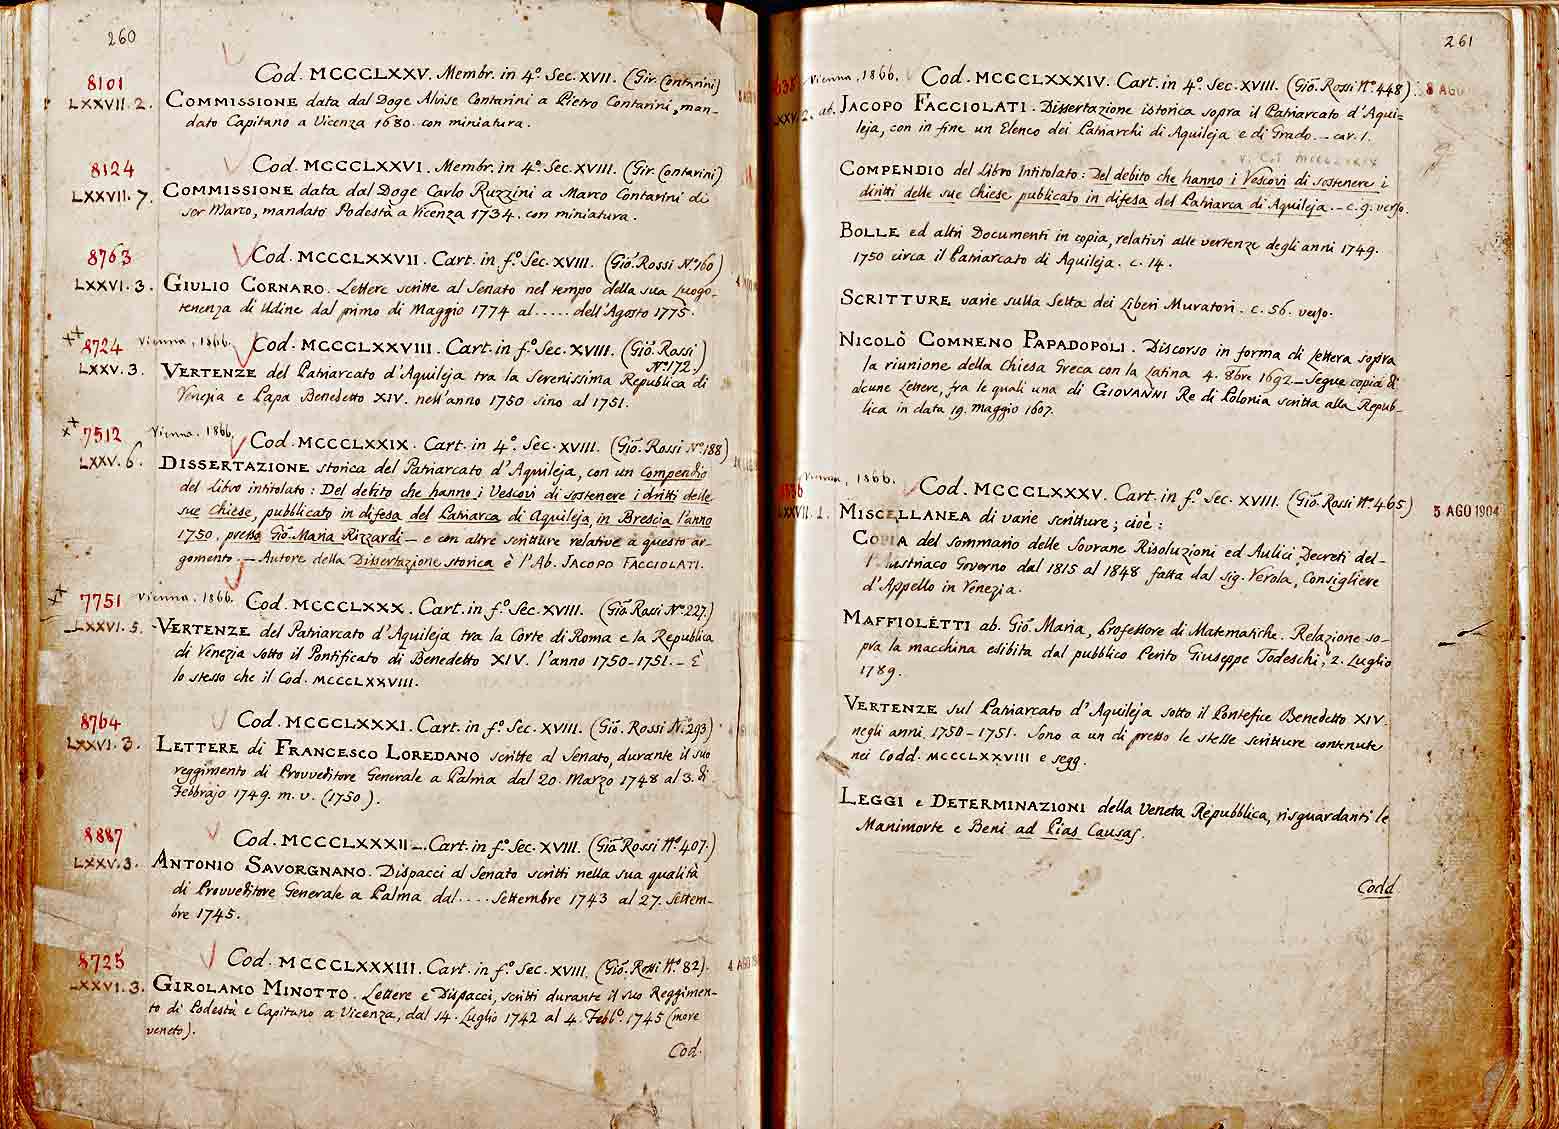 260
Cod. MCCCCLXXV. Membr. in 4.º Sec. XVII. (Gir. Contarini)
8101
LXXVII. 2. COMMISSIONE data dal Doge Alvise Contarini a Pietro Contarini, man-
dato Capitano a Vicenza 1680. con miniatura.
Cod. MCCCCLXXVI. Membr. in 4.º Sec. XVIII. (Gir. Contarini)
8124
LXXVII. 7. COMMISSIONE data dal Doge Carlo Ruzzini a Marco Contarini di
ser Marco, mandato Podestà a Vicenza 1734. con miniatura.
8763 Cod. MCCCCLXXVII. Cart. in f.º Sec. XVIII. (Gio. Rossi Nº 160)
LXXVI. 3. GIULIO CORNARO. Lettere scritte al Senato nel tempo della sua Luogo-
tenenza di Udine dal primo di Maggio 1774 al ..... dell'Agosto 1775.
8724 Vienna, 1866. Cod. MCCCCLXXVIII. Cart. in f.º Sec. XVIII. (Gio. Rossi
Nº 172.)
LXXV. 3. VERTENZE del Patriarcato d'Aquileja tra la Serenissima Repubblica di
Venezia e Papa Benedetto XIV. nell'anno 1750 sino al 1751.
7512 Vienna. 1866. Cod. MCCCCLXXIX. Cart. in 4.º Sec. XVIII. (Gio. Rossi Nº 188)
LXXV. 6. DISSERTAZIONE storica del Patriarcato d'Aquileja, con un compendio
del Libro intitolato: Del debito che hanno i Vescovi di sostenere i dritti delle
sue Chiese, pubblicato in difesa del Patriarca di Aquileja, in Brescia l'anno
1750. presso Gio. Maria Rizzardi — e con altre scritture relative a questo ar-
gomento. — Autore della Dissertazione storica è l'Ab. JACOPO FACCIOLATI.
7751 Vienna. 1866. Cod. MCCCCLXXX. Cart. in f.º Sec. XVIII. (Gio. Rossi Nº 227.)
LXXVI. 5. VERTENZE del Patriarcato d'Aquileja tra la Corte di Roma e la Repubblica
di Venezia sotto il Pontificato di Benedetto XIV. l'anno 1750-1751. — È
lo stesso che il Cod. MCCCCLXXVIII.
8764 Cod. MCCCCLXXXI. Cart. in f.º Sec. XVIII. (Gio. Rossi Nº 293)
LXXVI. 3. LETTERE di FRANCESCO LOREDANO scritte al Senato, durante il suo
reggimento di Provveditore Generale a Palma dal 20. Marzo 1748 al 3. di
Febbrajo 1749. m. v. (1750).
8887 Cod. MCCCCLXXXII —. Cart. in f.º Sec. XVIII. (Gio. Rossi Nº 407.)
LXXV. 3. ANTONIO SAVORGNANO. Dispacci al Senato scritti nella sua qualità
di Provveditore Generale a Palma dal .... Settembre 1743 al 27. Settem-
bre 1745.
8725 Cod. MCCCCLXXXIII. Cart. in f.º Sec. XVIII. (Gio. Rossi Nº 82). 4 AGO
LXXVI. 3. GIROLAMO MINOTTO. Lettere e Dispacci, scritti durante il suo Reggimen-
to di Podestà e Capitano a Vicenza, dal 14. Luglio 1742 al 4. Febbº. 1745 (more
veneto).
Cod.
261
Vienna, 1866. Cod. MCCCCLXXXIV. Cart. in 4.º Sec. XVIII. (Gio. Rossi Nº 448). 8 AGO
2. ab. JACOPO FACCIOLATI. Dissertazione istorica sopra il Patriarcato d'Aqui=
leja, con in fine un Elenco dei Patriarchi di Aquileja e di Grado. — car. 1.
v. Cod. MCCCCLXXIX
COMPENDIO del Libro Intitolato: Del debito che hanno i Vescovi di sostenere i
diritti delle sue Chiese publicato in difesa del Patriarca di Aquileja. — c. 9. verso.
BOLLE ed altri Documenti in copia, relativi alle vertenze degli anni 1749.
1750 circa il Patriarcato di Aquileja. c. 14.
SCRITTURE varie sulla Setta dei Liberi Muratori. c. 56. verso.
NICOLÒ COMNENO PAPADOPOLI. Discorso in forma di Lettera sopra
la riunione della Chiesa Greca con la Latina 4. 8bre 1692. — Segue copia di
alcune Lettere, fra le quali una di GIOVANNI Re di Polonia scritta alla Repub-
lica in data 19. maggio 1607.
Vienna, 1866. Cod. MCCCCLXXXV. Cart. in f.º Sec. XVIII. (Gio. Rossi Nº 465) 5 AGO 1904
MISCELLANEA di varie scritture; cioè:
COPIA del sommario delle Sovrane Risoluzioni ed Aulici Decreti del-
l'Austriaco Governo dal 1815 al 1848 fatta dal sig. Verola, Consigliere
d'Appello in Venezia.
MAFFIOLETTI ab. Gio. Maria, Professore di Matematiche. Relazione so-
pra la macchina esibita dal pubblico Perito Giuseppe Todeschi, 2. Luglio
1789.
VERTENZE sul Patriarcato d'Aquileja sotto il Pontefice Benedetto XIV.
negli anni 1750-1751. Sono a un di presso le stesse scritture contenute
nei Codd. MCCCCLXXVIII e segg.
LEGGI e DETERMINAZIONI della Veneta Repubblica, risguardanti le
Manimorte e Beni ad Pias Causas.
Codd.